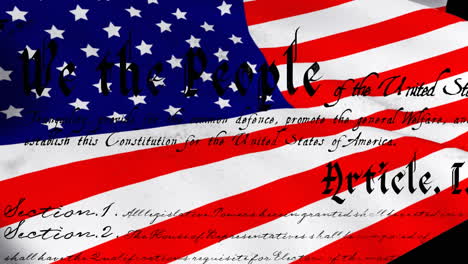 We the People of the United States
Tranquility, provide for the common defence, promote the general Welfare, and
establish this Constitution for the United States of America.
Article. I.
Section. 1. All legislative Powers herein granted shall be vested in a
Section. 2. The House of Representatives shall be composed of
shall have the Qualifications requisite for Electors of the most